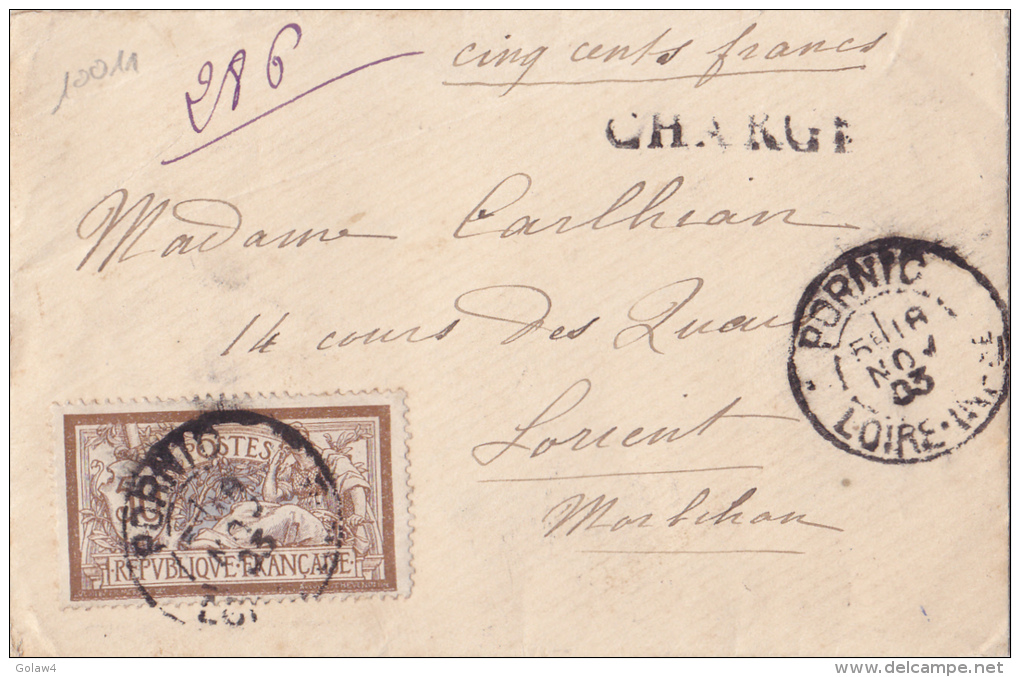 10011
286
cinq cents francs
CHARGE
Madame Carlhian
14 cours des Quais
Lorient
Morbihan
PORNIC
18
NOV
03
LOIRE-INFRE
POSTES
PORNIC
03
REPVBLIQVE·FRANÇAISE
Golaw4
www.delcampe.net